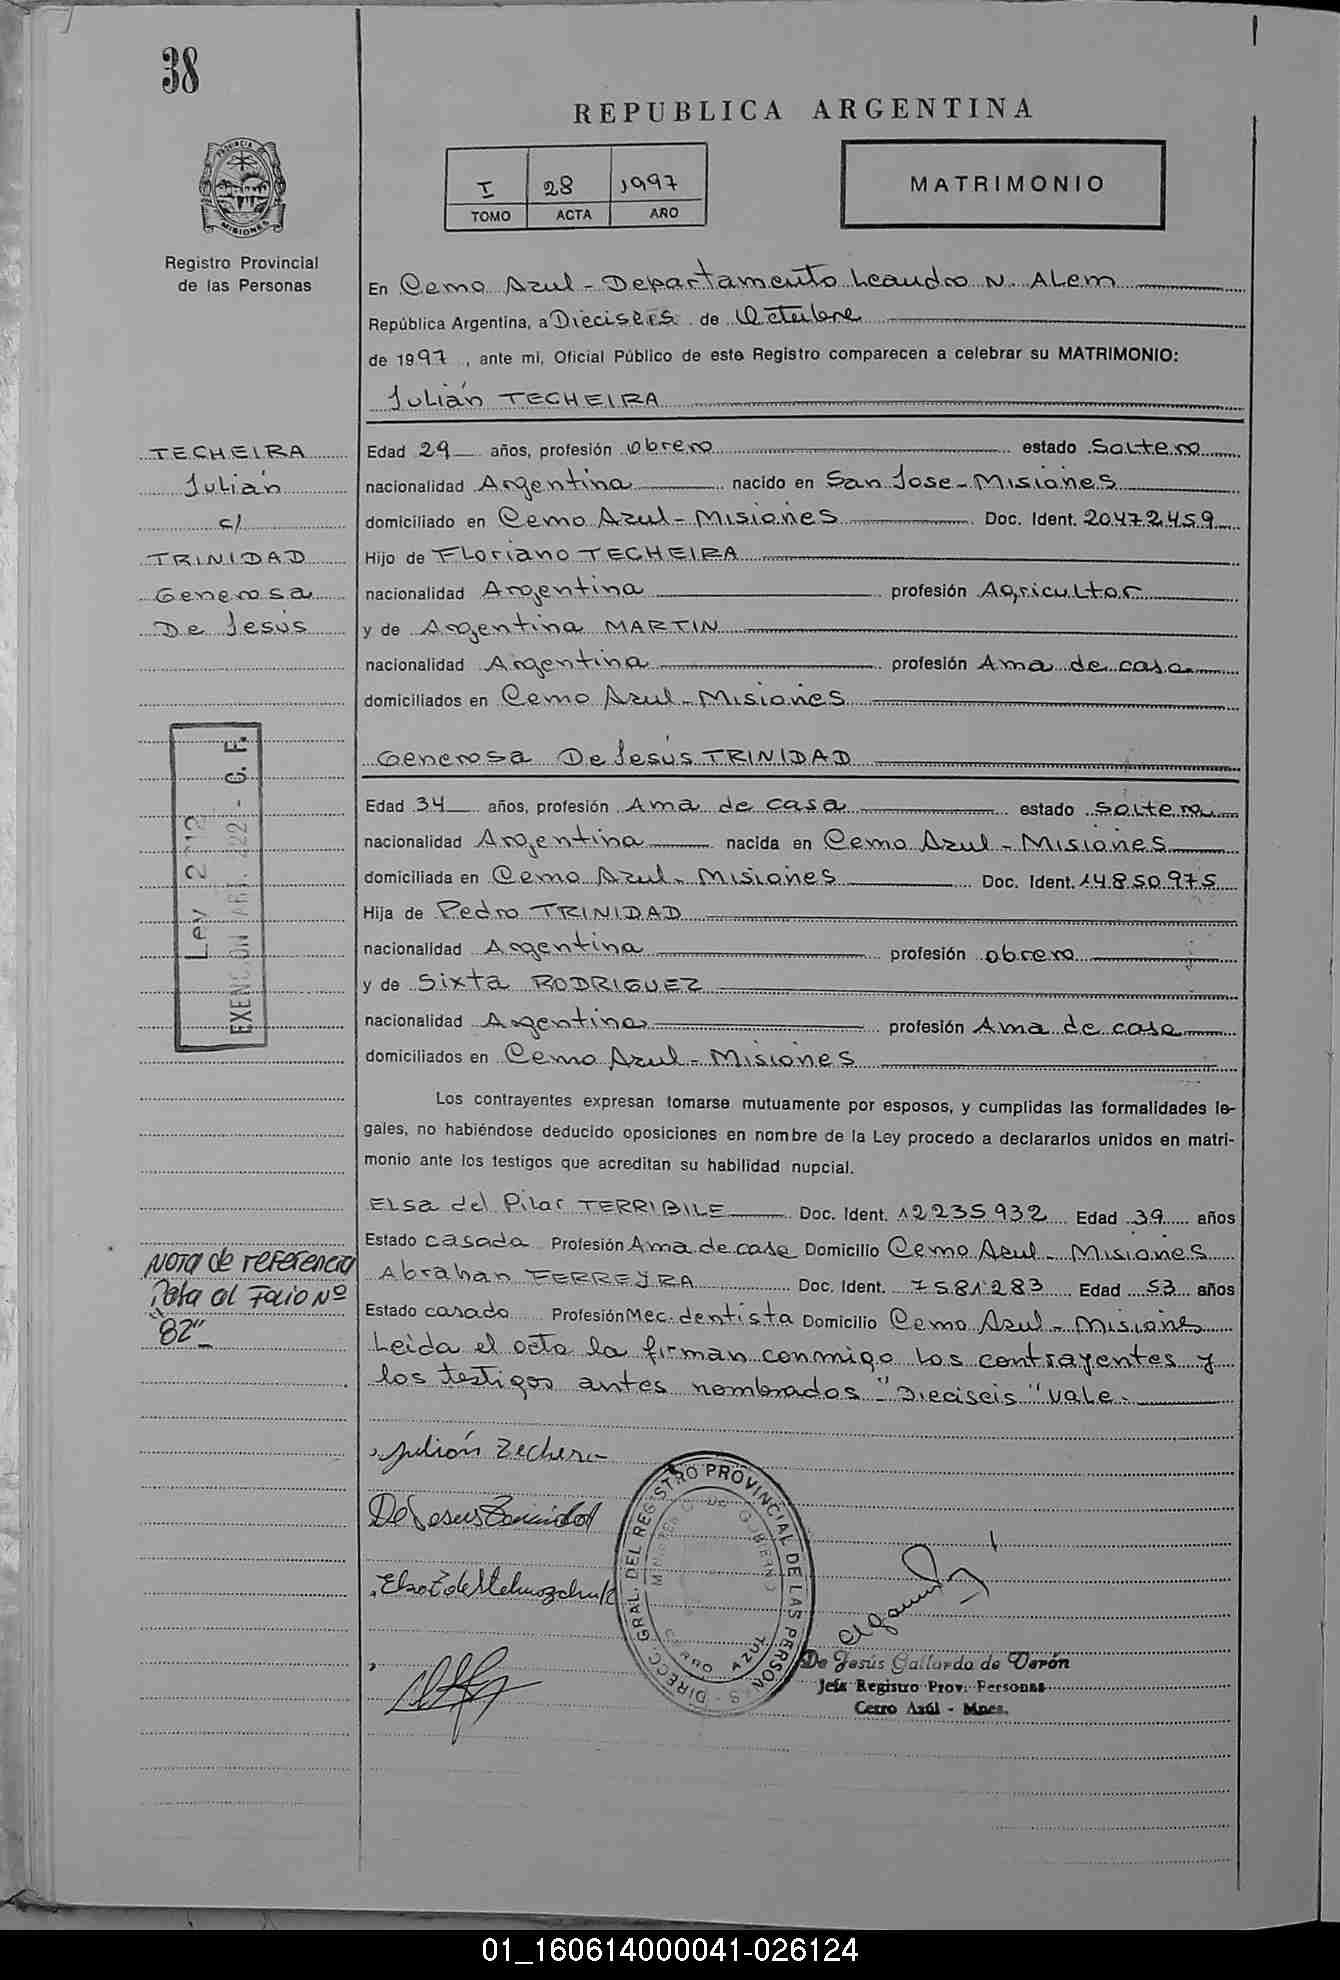 38
REPUBLICA ARGENTINA
PROVINCIA DE
MISIONES
Registro Provincial
de las Personas
I 28 1997
TOMO ACTA AÑO
MATRIMONIO
En Cerro Azul - Departamento Leandro N. ALem
República Argentina, a Dieciseis de Octubre
de 1997, ante mi, Oficial Público de este Registro comparecen a celebrar su MATRIMONIO:
Julián TECHEIRA
TECHEIRA
Julián
c/
TRINIDAD
Generosa
De Jesús
Edad 29 años, profesión obrero estado Soltero
nacionalidad Argentina nacido en San Jose - Misiones
domiciliado en Cerro Azul - Misiones Doc. Ident. 20.472.459
Hijo de Floriano TECHEIRA
nacionalidad Argentina profesión Agricultor
y de Argentina MARTIN
nacionalidad Argentina profesión Ama de casa
domiciliados en Cerro Azul - Misiones
Generosa De Jesús TRINIDAD
Edad 34 años, profesión Ama de casa estado soltera
nacionalidad Argentina nacida en Cerro Azul - Misiones
domiciliada en Cerro Azul - Misiones Doc. Ident. 14.850.975
Hija de Pedro TRINIDAD
nacionalidad Argentina profesión obrero
y de Sixta RODRIGUEZ
nacionalidad Argentina profesión Ama de casa
domiciliados en Cerro Azul - Misiones
Ley 2212
EXENCION ART. 222 - C. F.
Los contrayentes expresan tomarse mutuamente por esposos, y cumplidas las formalidades le-
gales, no habiéndose deducido oposiciones en nombre de la Ley procedo a declararlos unidos en matri-
monio ante los testigos que acreditan su habilidad nupcial.
Elsa del Pilar TERRIBILE Doc. Ident. 12.235.932 Edad 39 años
Estado casada Profesión Ama de casa Domicilio Cerro Azul - Misiones
Abrahan FERREYRA Doc. Ident. 7.581.283 Edad 53 años
Estado casado Profesión Mec. dentista Domicilio Cerro Azul - Misiones
Leida el acta la firman conmigo los contrayentes y
los testigos antes nombrados "Dieciseis" vale.
Nota de referencia
Pasa al Folio Nº
"82"
Julián Techera
De Jesus Trinidad
DIRECC. GRAL. DEL REGISTRO PROVINCIAL DE LAS PERSONAS
MINISTERIO DE GOBIERNO
CERRO AZUL
De Jesús Gallardo de Verón
Jefa Registro Prov. Personas
Cerro Azúl - Mnes.
01_160614000041-026124